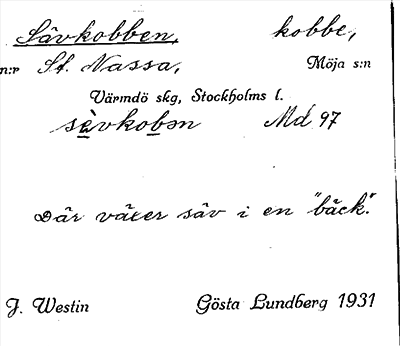 Sävkobben, kobbe,
n:r St. Nassa, Möja s:n
Värmdö skg, Stockholms l.
sè̱vkoḇən Md 97
Där växer säv i en "bäck".
J. Westin Gösta Lundberg 1931